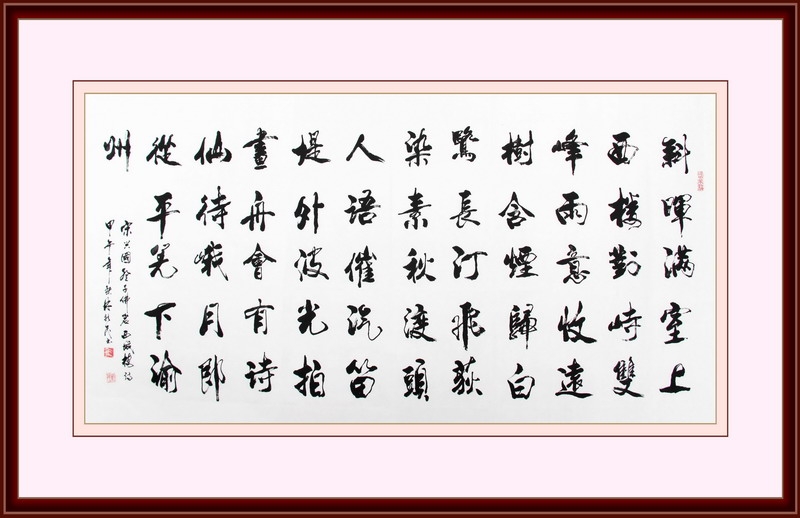 斜暉滿室上
西樓對峙雙
峰雨意收遠
樹含煙歸白
鷺長汀飛荻
染素秋渡頭
人語催汽笛
堤外波光拍
畫舟會有詩
仙待峨月郎
從平羌下渝
州
宋國登子佛岩樓詩
甲午年秋書